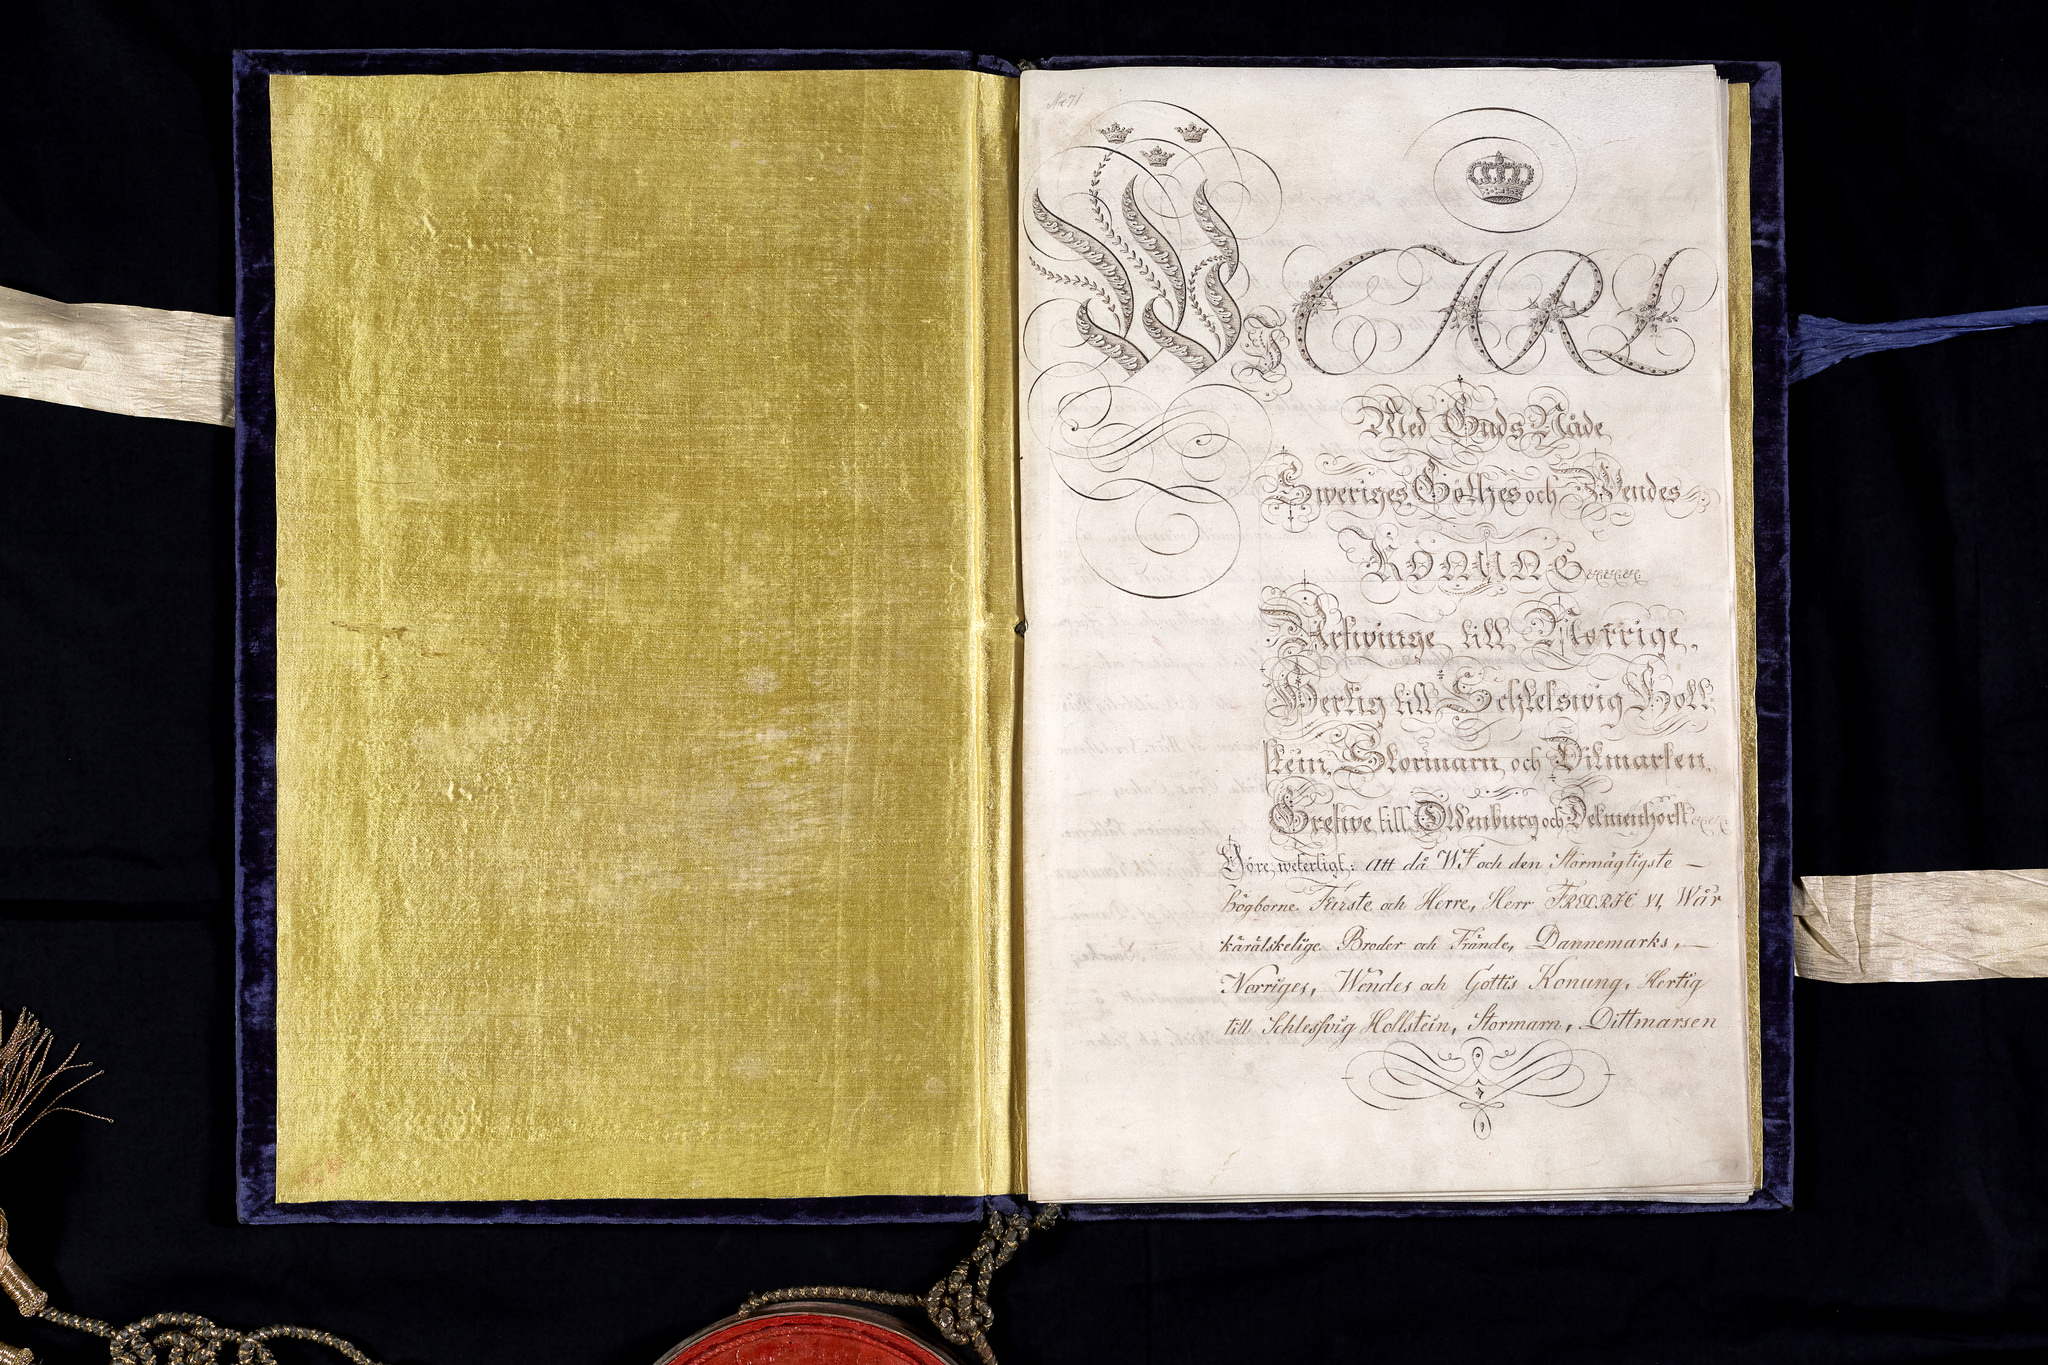 No 71
Wi CARL
Med Guds Nåde
Sweriges Göthes och Wendes
KONUNG &c. &c. &c.
Arfwinge till Norrige,
Hertig till Schleswig Holl-
stein, Stormarn och Ditmarsen,
Grefwe till Oldenburg och Delmenhorst &c. &c.
Göre weterligt: att då WI och den Stormägtigste —
högborne Furste och Herre, Herr FREDRIC VI, Wår
käraelskelige Broder och Frände, Dannemarks, —
Norriges, Wendes och Göttis Konung, Hertig
till Schlesswig Hollstein, Stormarn, Dittmarsen